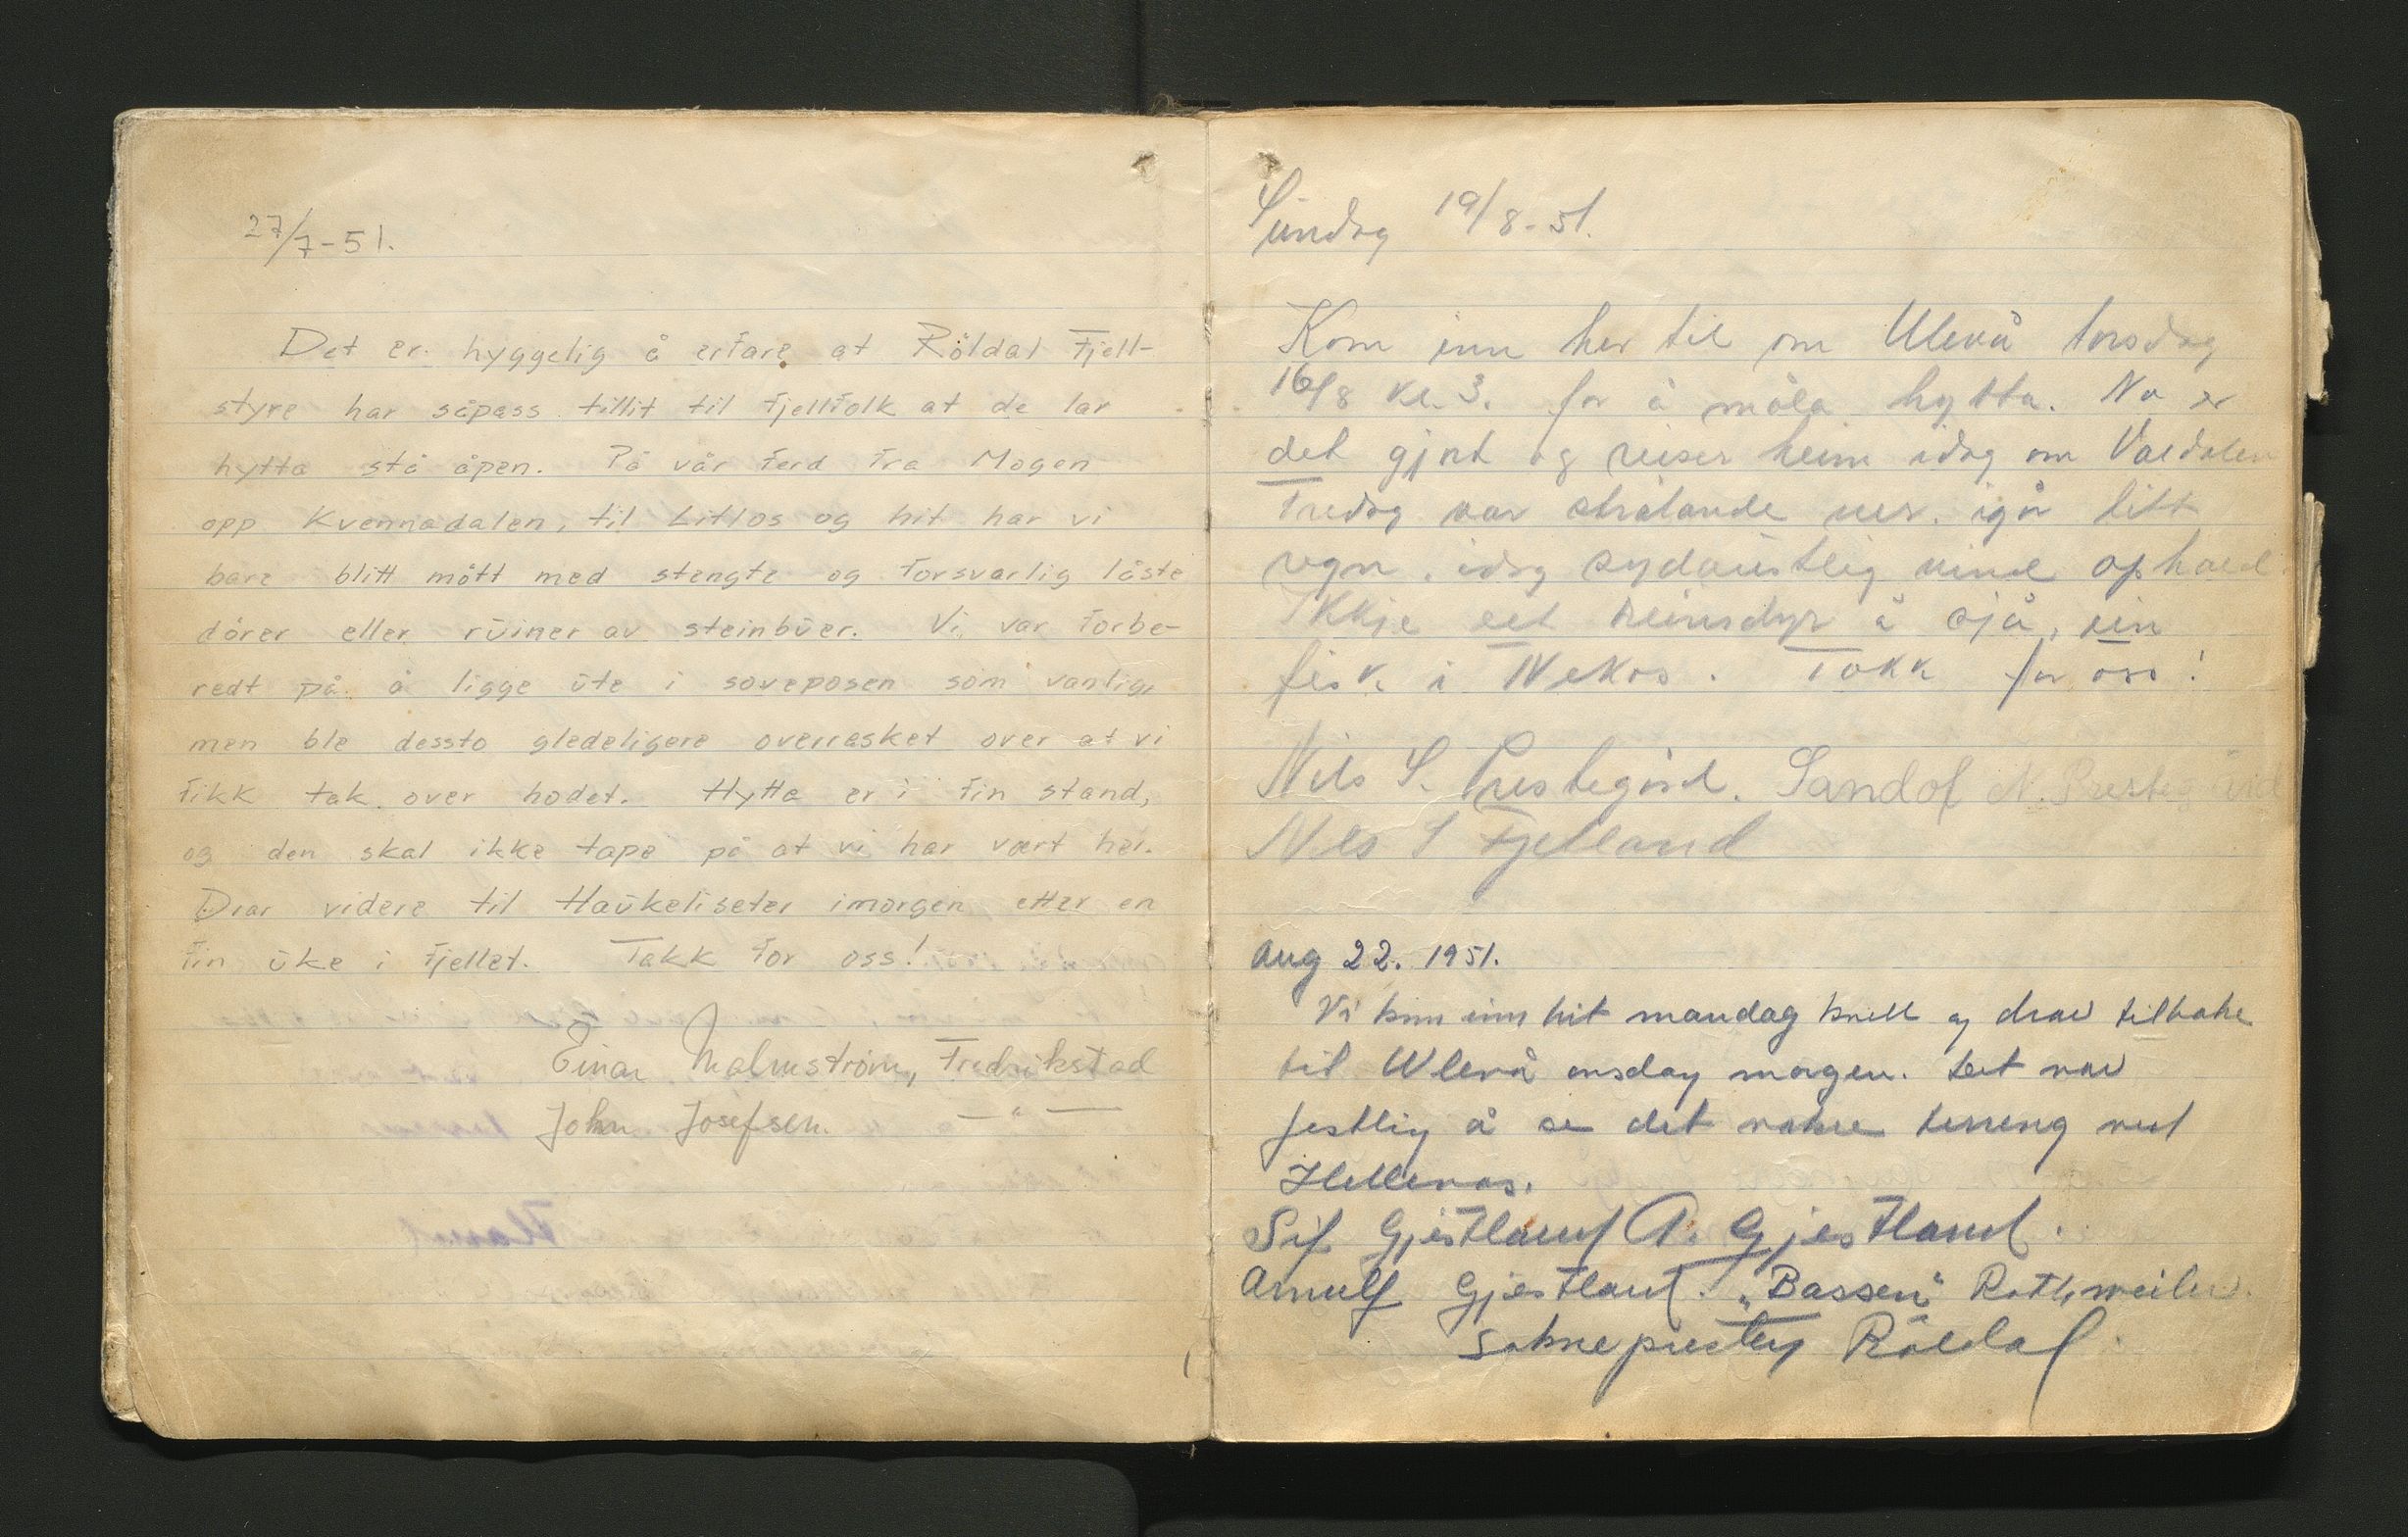 27/7-51.
Det er hyggelig å erfare at Röldal Fjell-
styre har såpass tillit til fjellfolk at de lar
hytta stå åpen. På vår ferd fra Mogen
opp Kvennadalen, til Litlos og hit har vi
bare blitt mött med stengte og forsvarlig låste
dörer eller ruiner av steinbuer. Vi var forbe-
redt på å ligge ute i soveposen som vanlig,
men ble dessto gledeligere overrasket over at vi
fikk tak over hodet. Hytta er i fin stand,
og den skal ikke tape på at vi har vært her.
Drar videre til Haukeliseter imorgen etter en
fin uke i fjellet. Takk for oss!
Einar Malmström, Fredrikstad
John Josefsen. — " —
Sundag 19/8-51.
Kom inn her til om Ulevå torsdag
16/8 kl. 3. for å måla hytta. No er
det gjort og reiser heim idag om Valdalen
Fredag var strålande ver. igår litt
regn. idag sydaustlig vind ophald.
Ikkje eit reinsdyr å sjå, ein
fisk i . Takk for oss!
Nils S. Prestegård. Sandolf N. Prestegård
Nils S Fjetland
Aug 22. 1951.
Vi kom inn hit mandag kveld og drar tilbake
til Ulevå onsdag morgen. Det var
festlig å se det vakre terreng ved
Hellevas.
Sif Gjestland A. Gjestland.
Arnulf Gjestland. "Bassen" Rottweiler.
Sokneprestey Röldal.